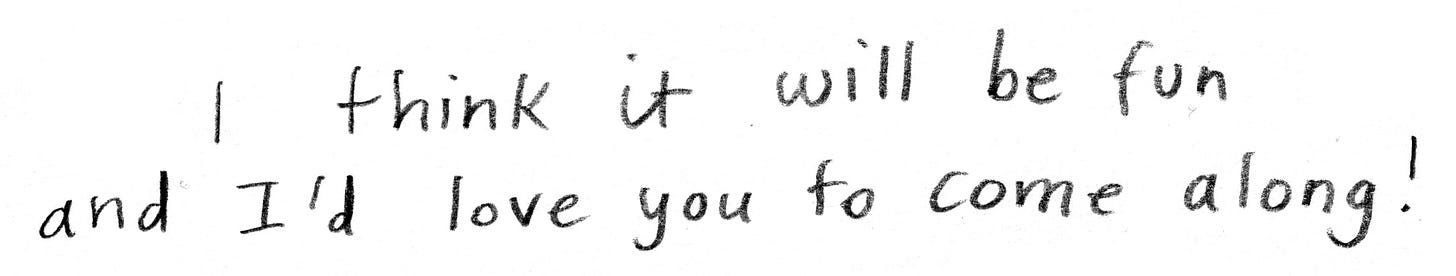 I think it will be fun
and I'd love you to come along!